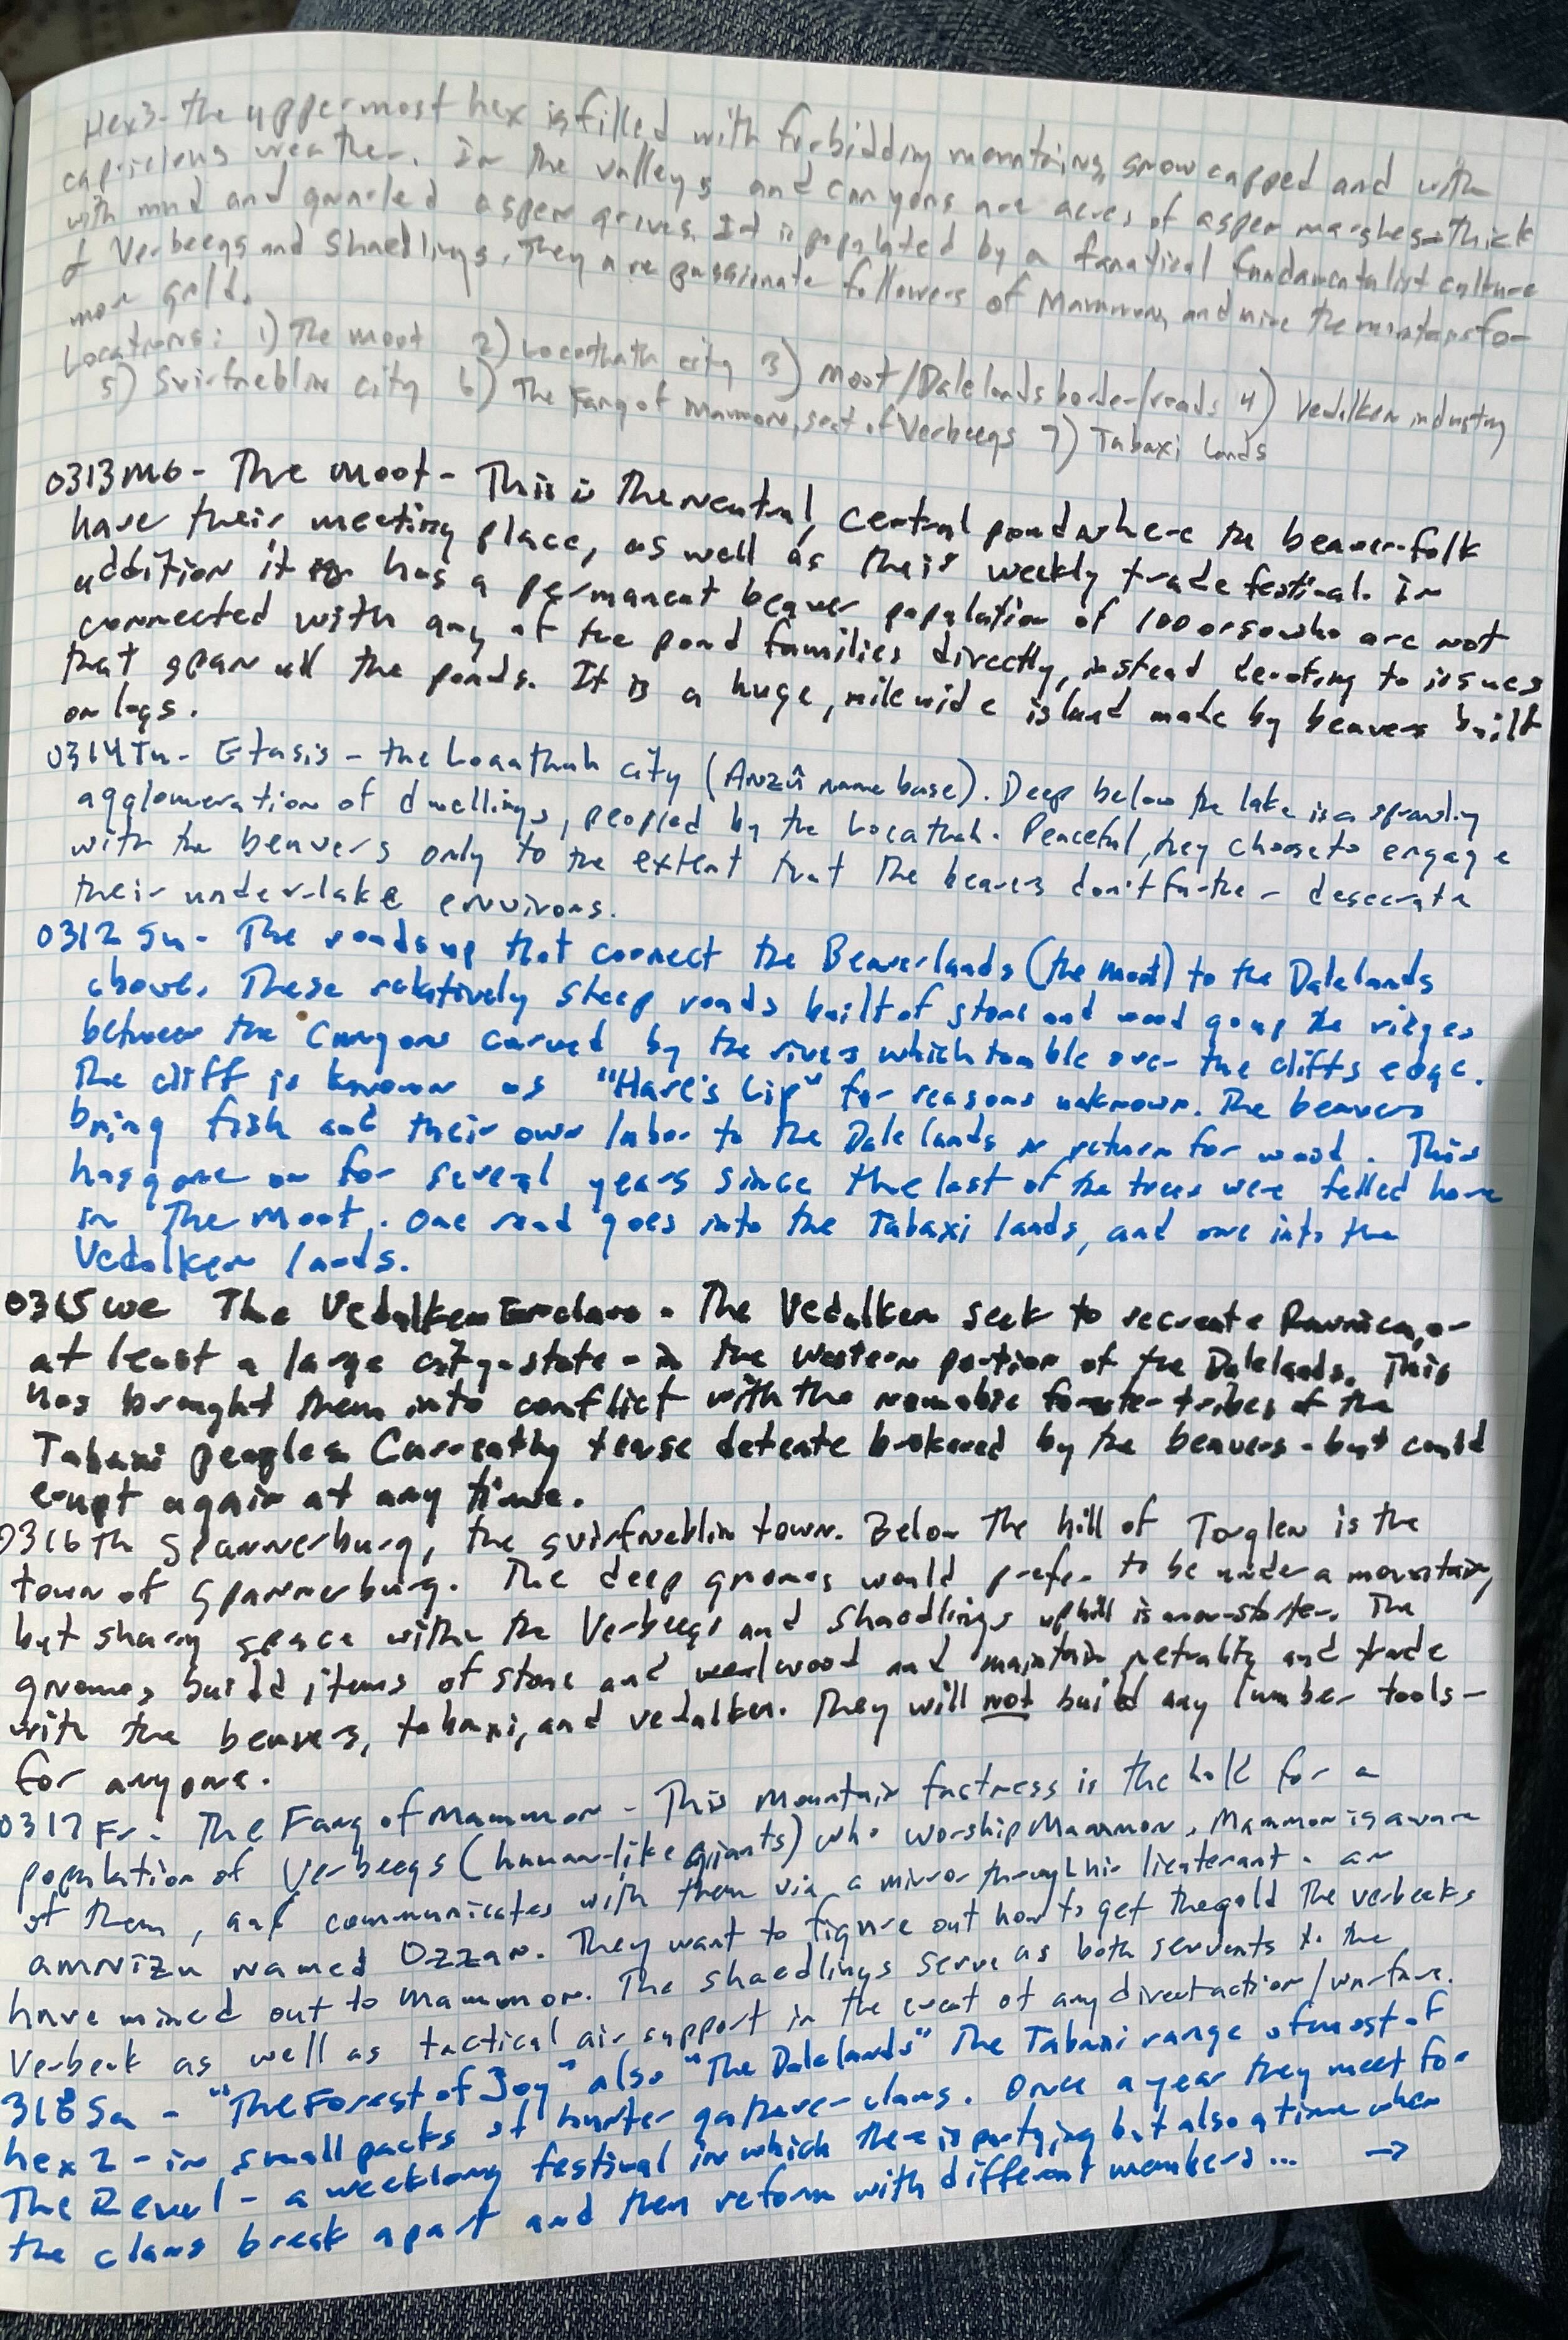 Hex3- the uppermost hex is filled with forbidding mountains, snowcapped and with
capricious weather. In the valleys and canyons are acres of aspen marshes - thick
with mud and gnarled aspen groves. It is populated by a fanatical fundamentalist culture
of Verbeegs and Shaedlings. They are passionate followers of Mammon, and mine the mountains for
more gold.
Locations: 1) The moot 2) Locathath city 3) Moot/Dalelands border/roads 4) Vedalken industry
5) Svirfneblin city 6) The Fang of Mammon, seat of Verbeegs 7) Tabaxi lands
0313 Mo - The Moot - This is the neutral, central pond where the beaver-folk
have their meeting place, as well as their weekly trade festival. In
addition it has a permanent beaver population of 100 or so who are not
connected with any of the pond families directly, instead devoting to issues
that span all the ponds. It is a huge, mile wide island made by beavers built
on logs.
0314 Tu - Etasis - the Locathah city (Anzû name base). Deep below the lake is a sprawling
agglomeration of dwellings, peopled by the Locathah. Peaceful, they choose to engage
with the beavers only to the extent that the beavers don't further desecrate
their under-lake environs.
0312 Su - The roads up that connect the Beaverlands (the Moot) to the Dalelands
above. These relatively steep roads built of stone and wood go up the ridges
between the canyons carved by the rivers which tumble over the cliffs edge.
The cliff is known as "Hare's Lip" for reasons unknown. The beavers
bring fish and their own labor to the Dalelands in return for wood. This
has gone on for several years since the last of the trees were felled here
in The Moot. One road goes into the Tabaxi lands, and one into the
Vedalken lands.
0315 We The Vedalken Enclave - The Vedalken seek to recreate Ravnica, or
at least a large city-state - in the western portion of the Dalelands. This
has brought them into conflict with the nomadic forester tribes of the
Tabaxi peoples. Currently tense detente brokered by the beavers - but could
erupt again at any time.
0316 Th Spannerburg, the svirfneblin town. Below the hill of Torglen is the
town of Spannerburg. The deep gnomes would prefer to be under a mountain,
but sharing space with the Verbeegs and Shaedlings uphill is non-starter. The
gnomes build items of stone and wood and maintain netrality and trade
with the beavers, tabaxi, and vedalken. They will not build any lumber tools -
for anyone.
0317 Fr - The Fang of Mammon - This mountain fastness is the hold for a
population of Verbeegs (human-like giants) who worship Mammon. Mammon is aware
of them, and communicates with them via a mirror through his lieutenant - an
amnizu named Ozzan. They want to figure out how to get the gold the verbeeks
have mined out to Mammon. The shaedlings serve as both servants to the
Verbeek as well as tactical air support in the event of any direct action/warfare.
318 Sa - "The Forest of Joy" also "The Dalelands" The Tabaxi range of most of
hex 2 - in small packs of hunter gatherer clans. Once a year they meet for
The Revel - a weeklong festival in which there is partying but also a time when
the clans break apart and then reform with different members... →